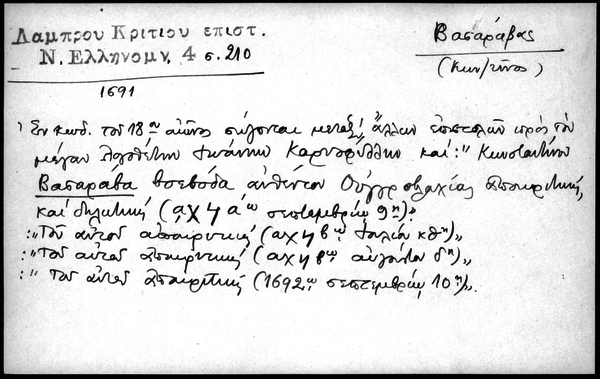 Λαμπρου Κριτιου επιστ.
Ν. Ελληνομν, 4 σ. 210
1691
Βασαράβας
(Κων/τῖνος)
Ἐν κωδ. τοῦ 18ου αἰῶνος σώζονται μεταξὺ ἄλλων ἐπιστολῶν πρὸς τὸν
μέγαν λογοθέτην Ἰωάννην Καρυοφύλλην καὶ: "Κωνσταντίνου
Βασαράβα βοεβόδα αὐθέντου Οὐγγροβλαχίας ἀποκριτική,
καὶ δηλωτική (αχϟα΄ῳ σεπτεμβρίῳ 9ῃ)"
:"Τοῦ αὐτοῦ ἀποκριτική (αχϟβῳ Ἰουλίου κθῃ)"
:"Τοῦ αὐτοῦ ἀποκριτική (αχϟβῳ αὐγούστου δῃ)"
:"Τοῦ αὐτοῦ ἀποκριτική (1692ῳ σεπτεμβρίῳ 10ῃ)".